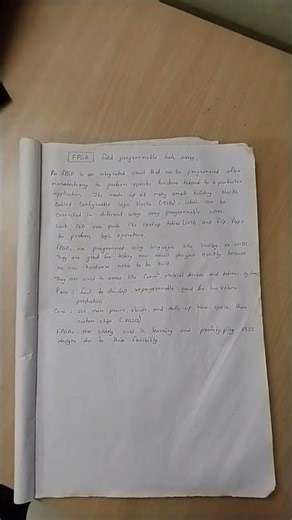 FPGA field programmable Gate array
An FPGA is an integrated circuit that can be programmed after
manufacturing to perform specific functions tailored to a particular
application. The made up of many small building blocks
called Configurable logic blocks (CLBs) which can be
connected in different ways using programmable wires
Each CLB uses parts like lookup tables (LUTs) and flip flops
to perform logic operations.
FPGAs are programmed using languages like Verilog or VHDL.
They are great for testing new circuit designs quickly because
no new hardware needs to be built
They are used in areas like Comm, medical devices and defence systems
Pros : fast to develop, reprogrammable, good for low volume
production
Cons : use more power, slower, and take up more space, than
custom chips (ASICs)
FPGAs are widely used in learning and prototyping VLSI
designs due to their flexibility